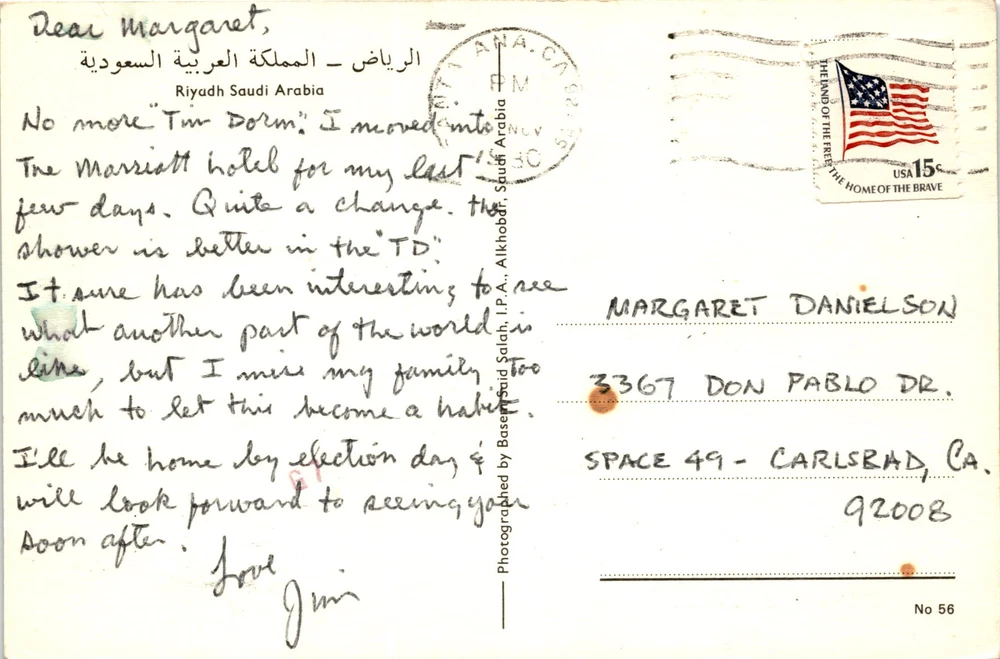 Dear Margaret,
الرياض – المملكة العربية السعودية
Riyadh Saudi Arabia
No more "Tin Dorm". I moved into
The Marriott hotel for my last
few days. Quite a change. the
shower is better in the "TD".
It sure has been interesting to see
what another part of the world is
like, but I miss my family too
much to let this become a habit.
I'll be home by election day &
will look forward to seeing you
soon after.
Love
Jim
Photographed by Basem Said Salah, I.P.A., Alkhobar, Saudi Arabia
SANTA ANA, CA 926
PM
NOV
1980
THE LAND OF THE FREE
THE HOME OF THE BRAVE
USA 15c
MARGARET DANIELSON
3367 DON PABLO DR.
SPACE 49 - CARLSBAD, CA.
92008
No 56